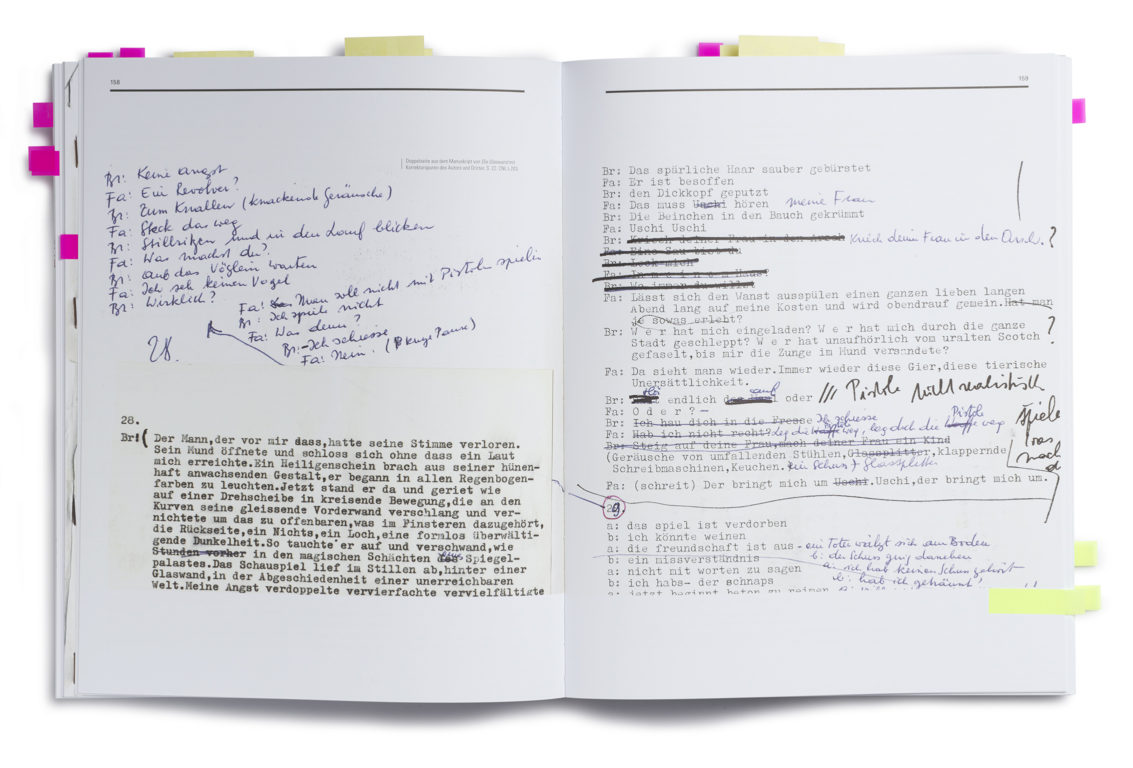 158
Doppelseite aus dem Manuskript von Die
Korrekturspuren des Autors und Dritter, S.
Br: Keine Angst
Fa: Ein Revolver?
Br: Zum Knallen (knackende Geräusche)
Fa: Steck das weg
Br: Stillsitzen und in den Lauf blicken
Fa: Was machst du?
Br: auf das Vöglein warten
Fa: Ich seh keinen Vogel
Br: Wirklich?
Fa: Man soll nicht mit Pistolen spielen
Br: Ich spiele nicht
Fa: Was denn?
Br: Ich schiesse
Fa: Nein! (kurze Pause)
28.
28.
Br:( Der Mann,der vor mir dass,hatte seine Stimme verloren.
Sein Mund öffnete und schloss sich ohne dass ein Laut
mich erreichte.Ein Heiligenschein brach aus seiner hünen-
haft anwachsenden Gestalt,er begann in allen Regenbogen-
farben zu leuchten.Jetzt stand er da und geriet wie
auf einer Drehscheibe in kreisende Bewegung,die an den
Kurven seine gleissende Vorderwand verschlang und ver-
nichtete um das zu offenbaren,was im Finsteren dazugehört,
die Rückseite,ein Nichts,ein Loch,eine formlos überwälti-
gende Dunkelheit.So tauchte er auf und verschwand,wie
Stunden vorher in den magischen Schächten des Spiegel-
palastes.Das Schauspiel lief im Stillen ab,hinter einer
Glaswand,in der Abgeschiedenheit einer unerreichbaren
Welt.Meine Angst verdoppelte vervierfachte vervielfältigte
159
Br: Das spärliche Haar sauber gebürstet
Fa: Er ist besoffen
Br: den Dickkopf geputzt
Fa: Das muss Uschi hören meine Frau
Br: Die Beinchen in den Bauch gekrümmt
Fa: Uschi Uschi
Br: Kriech deiner Frau in den Arsch Kriech deiner Frau in den Arsch. ?
Fa: Eine Sau bist du
Br: Leck mich
Fa: In m e i n e m Haus?
Br: Wo immer du willst
Fa: Lässt sich den Wanst ausspülen einen ganzen lieben langen
Abend lang auf meine Kosten und wird obendrauf gemein.Hat man
je sowas erlebt?
Br: W e r hat mich eingeladen? W e r hat mich durch die ganze ?
Stadt geschleppt? W e r hat unaufhörlich vom uralten Scotch
gefaselt,bis mir die Zunge im Mund versandete?
Fa: Da sieht mans wieder.Immer wieder diese Gier,diese tierische
Unersättlichkeit.
Br: endlich oder /// Pistole nicht realistisch
Fa: O d e r? —
Br: Ich hau dich in die Fresse Ich schiesse
Fa: Hab ich nicht recht? leg die Waffe weg, leg doch die Waffe Pistole weg
Br: Steig auf deine Frau,mach deiner Frau ein Kind
(Geräusche von umfallenden Stühlen,Glassplitter,klappernde
Schreibmaschinen,Keuchen. ein Schuss, Glassplitter
Fa: (schreit) Der bringt mich um Uschi.Uschi,der bringt mich um.
29.
a: das spiel ist verdorben
b: ich könnte weinen
a: die freundschaft ist aus - ein Toter wälzt sich am Boden
b: ein missverständnis b: der Schuss ging daneben
a: nicht mit worten zu sagen a: ich hab keinen Schuss gehört
b: ich habs- der schnaps b: hab ich geträumt?
a: jetzt beginnt beton zu reimen